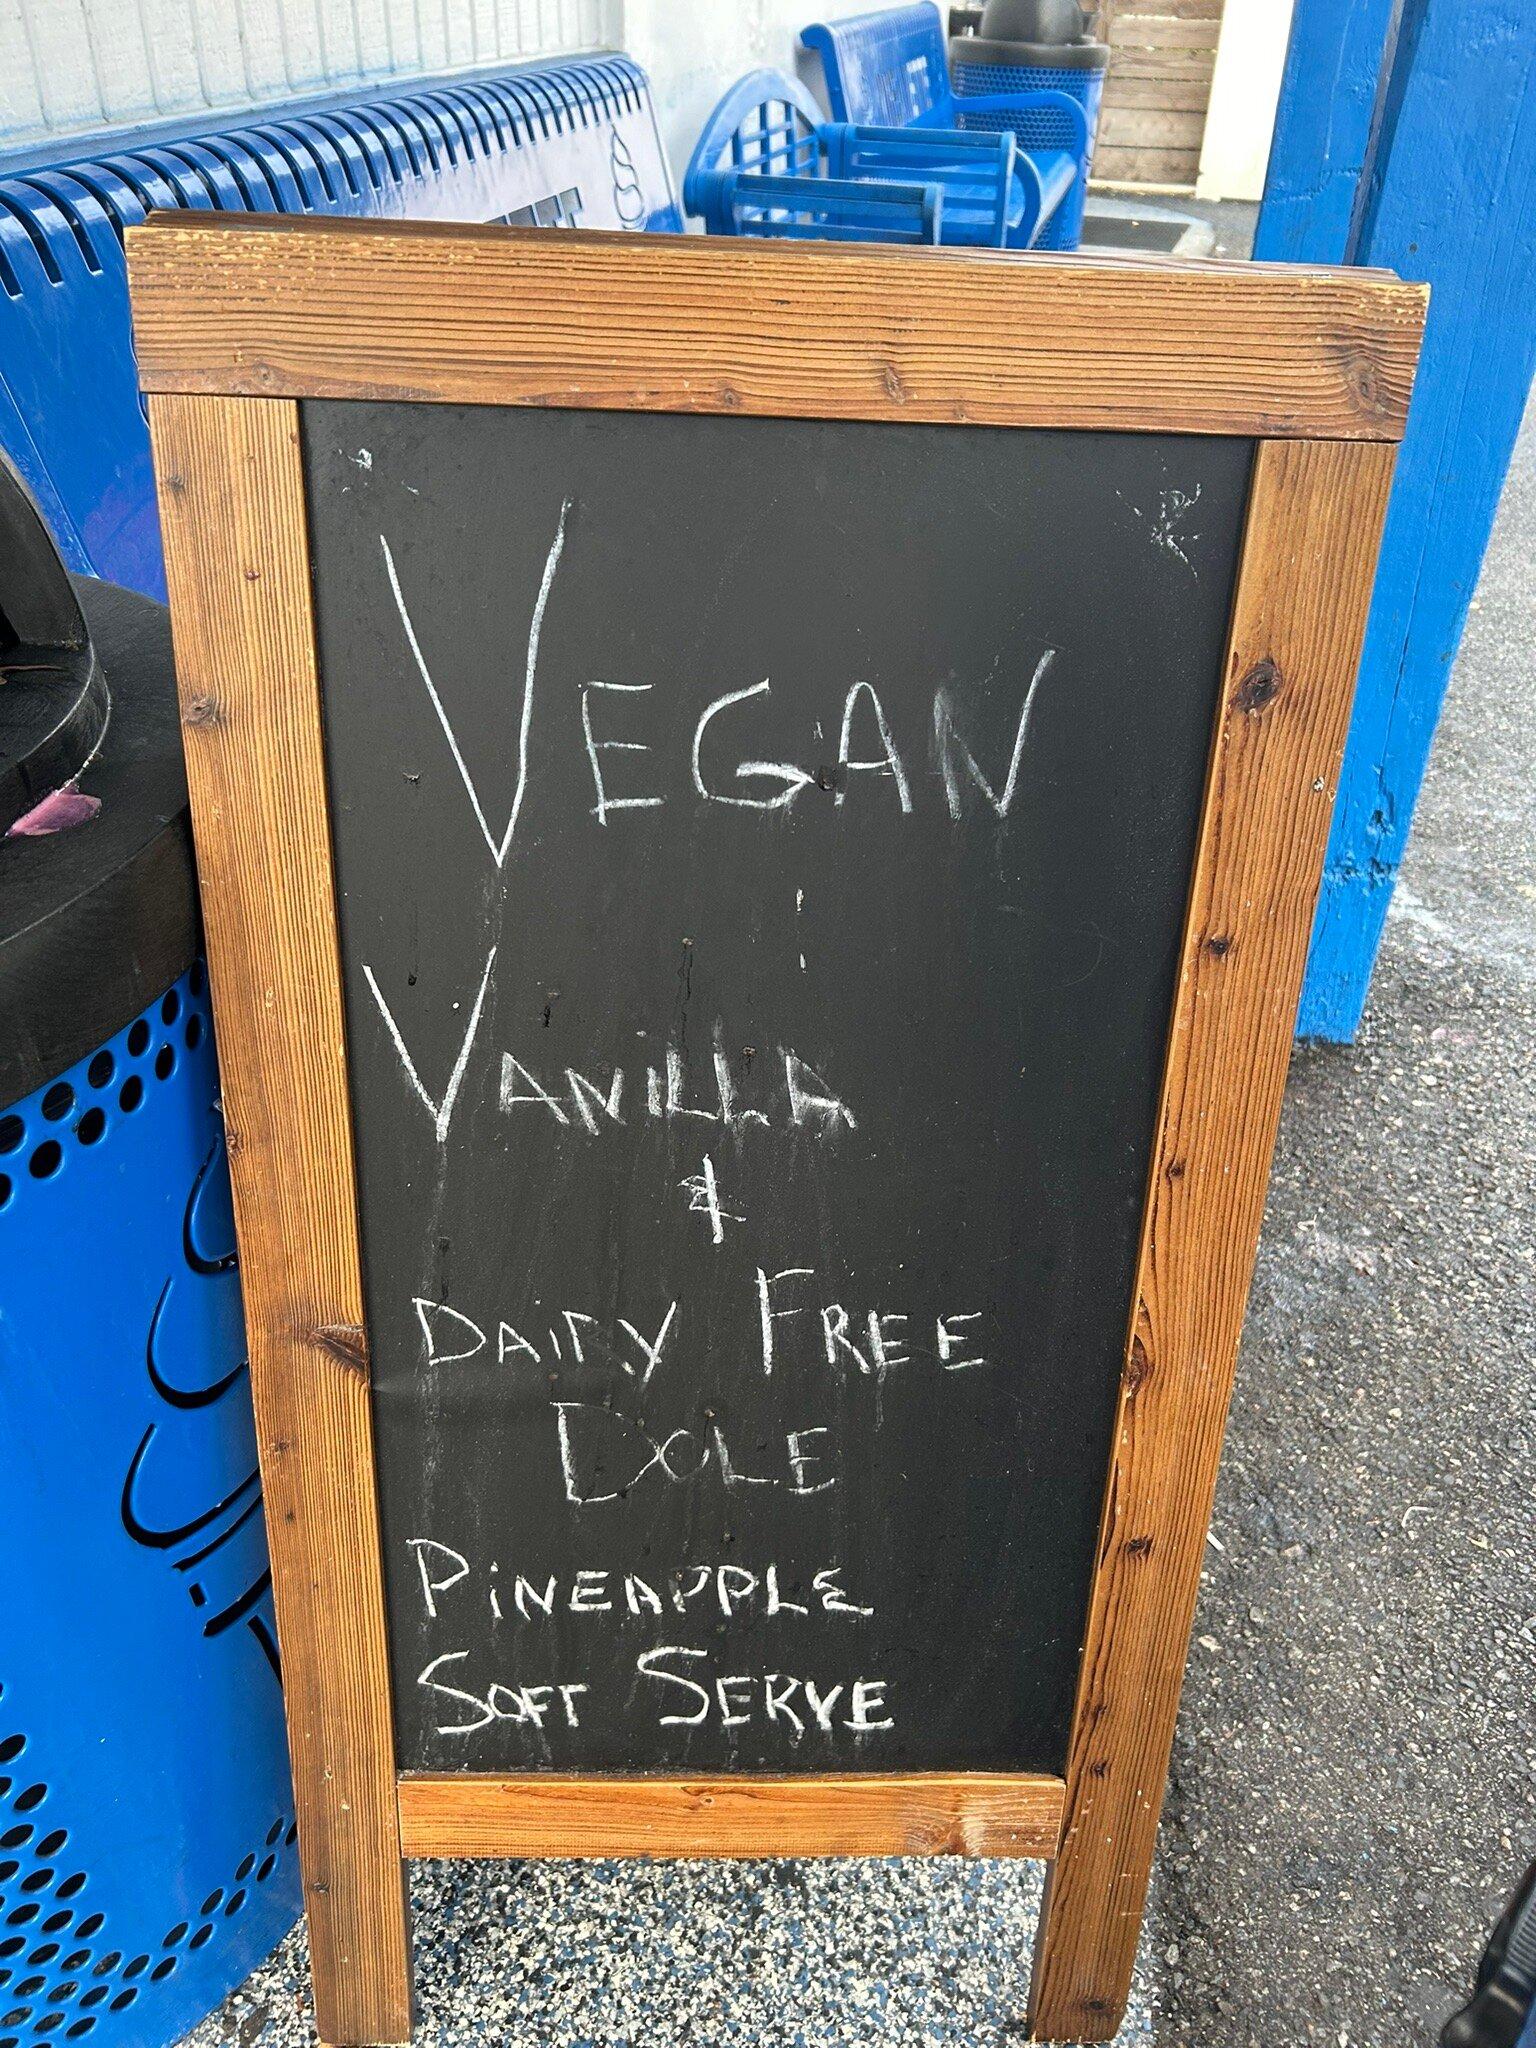 VEGAN
VANILLA
&
DAiRY FREE
DOLE
PiNEAPPLE
SOFT SERVE